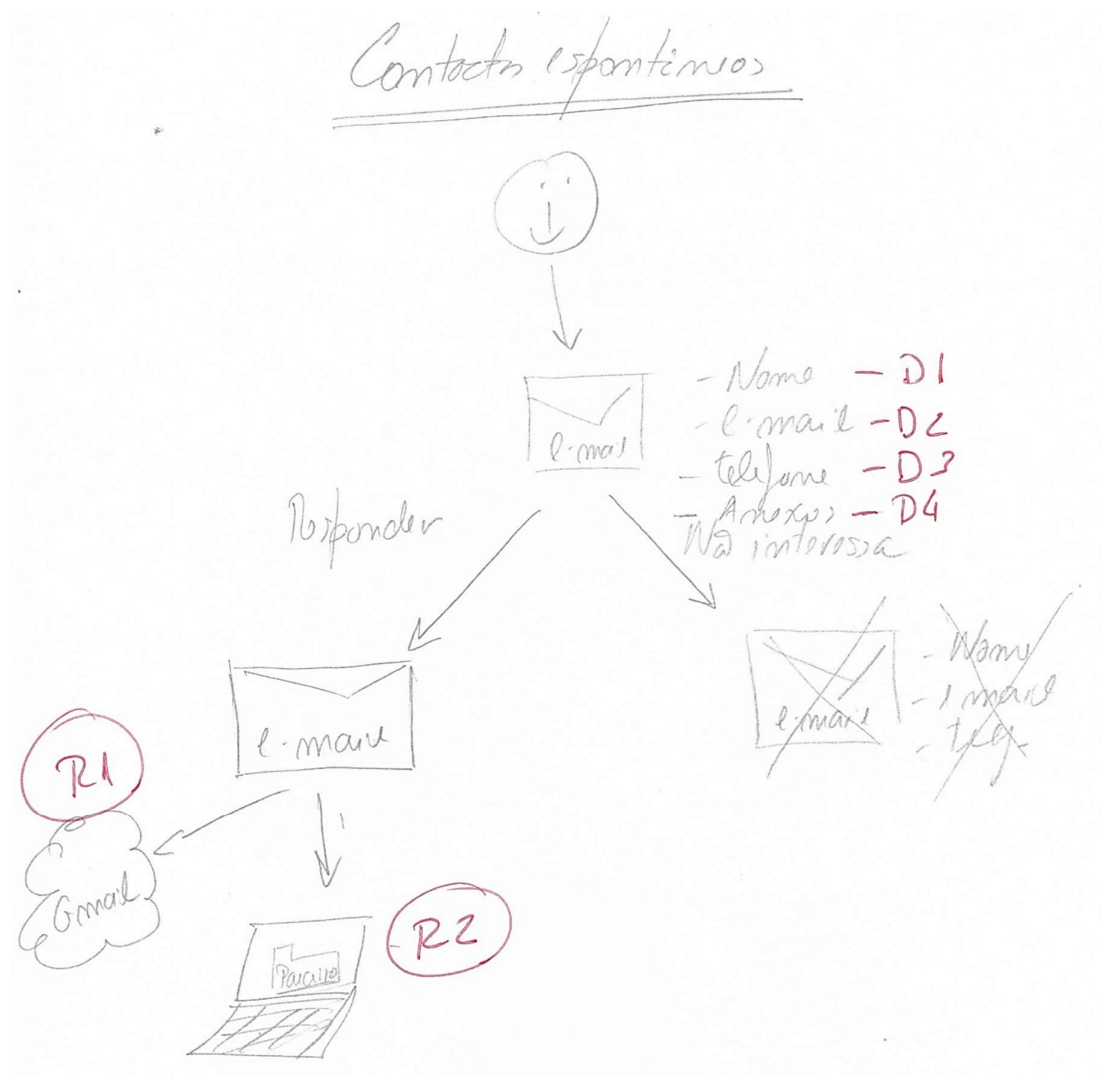 Contactos espontâneos
e-mail
- Nome - D1
- e-mail - D2
- telefone - D3
- Anexos - D4
Responder
Não interessa
e-mail
e-mail
- Nome
- e-mail
R1
Gmail
R2